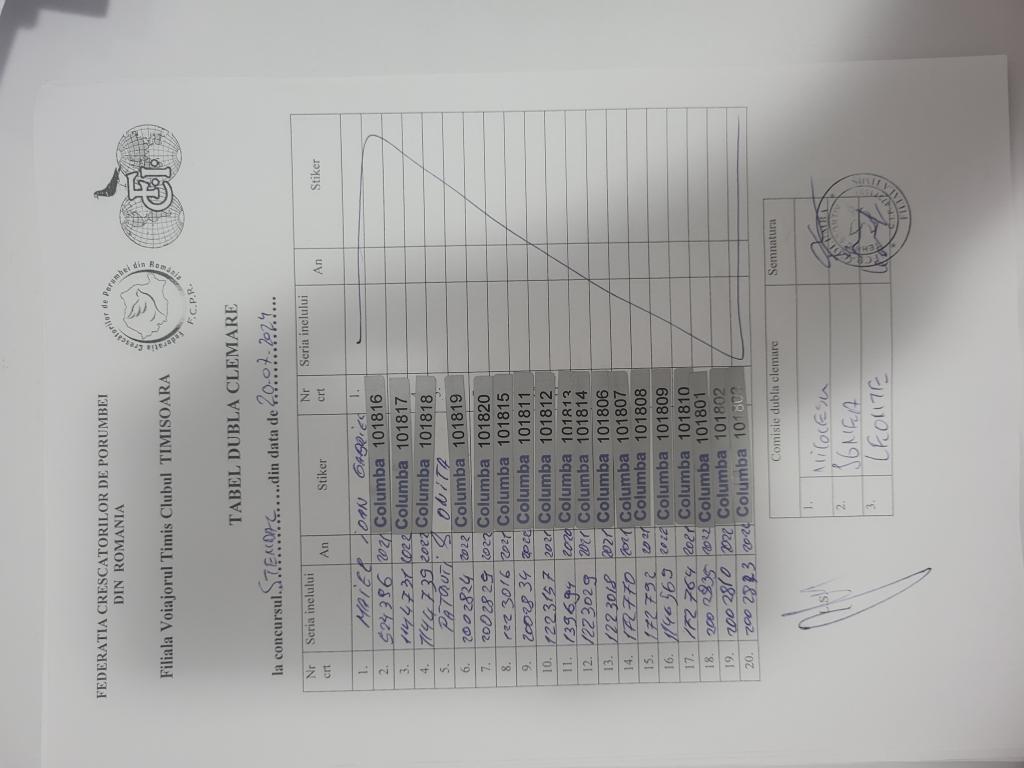 FEDERATIA CRESCATORILOR DE PORUMBEI
DIN ROMANIA
Federatia Crescatorilor de Porumbei din România
F.C.P.R.
FCI
Filiala Voiajorul Timis Clubul TIMISOARA
TABEL DUBLA CLEMARE
la concursul..STENDAL......din data de 20.07.2024....
Nr crt Seria inelului An Stiker Nr crt Seria inelului An Stiker
1. MAIER IOAN 1.
2. 524396 2021 Columba 101816
3. 1144731 2022 Columba 101817
4. 1144739 2022 Columba 101818
5. ONITA
6. 2002824 2022 Columba 101819
7. 2002829 2022 Columba 101820
8. 1223016 2021 Columba 101815
9. 2002834 2022 Columba 101811
10. 122317 2021 Columba 101812
11. 139694 2020 Columba 101813
12. 1223029 2021 Columba 101814
13. 1223018 2021 Columba 101806
14. 172770 2021 Columba 101807
15. 172792 2021 Columba 101808
16. 1146569 2022 Columba 101809
17. 172764 2021 Columba 101810
18. 2002835 2022 Columba 101801
19. 2002810 2022 Columba 101802
20. 2022 Columba
Comisie dubla clemare Semnatura
1.
2. IGNEA
3. LEONTE